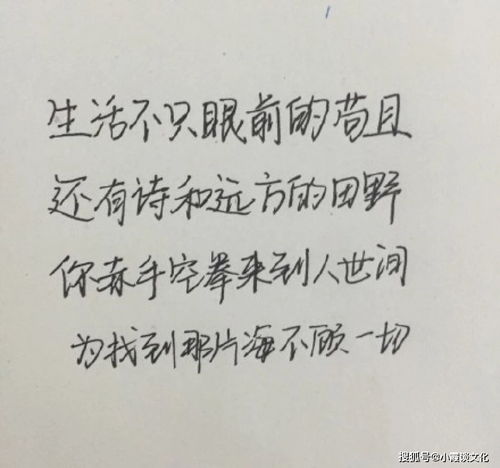 生活不只眼前的苟且
还有诗和远方的田野
你赤手空拳来到人世间
为找到那片海不顾一切
搜狐号@小霞谈文化